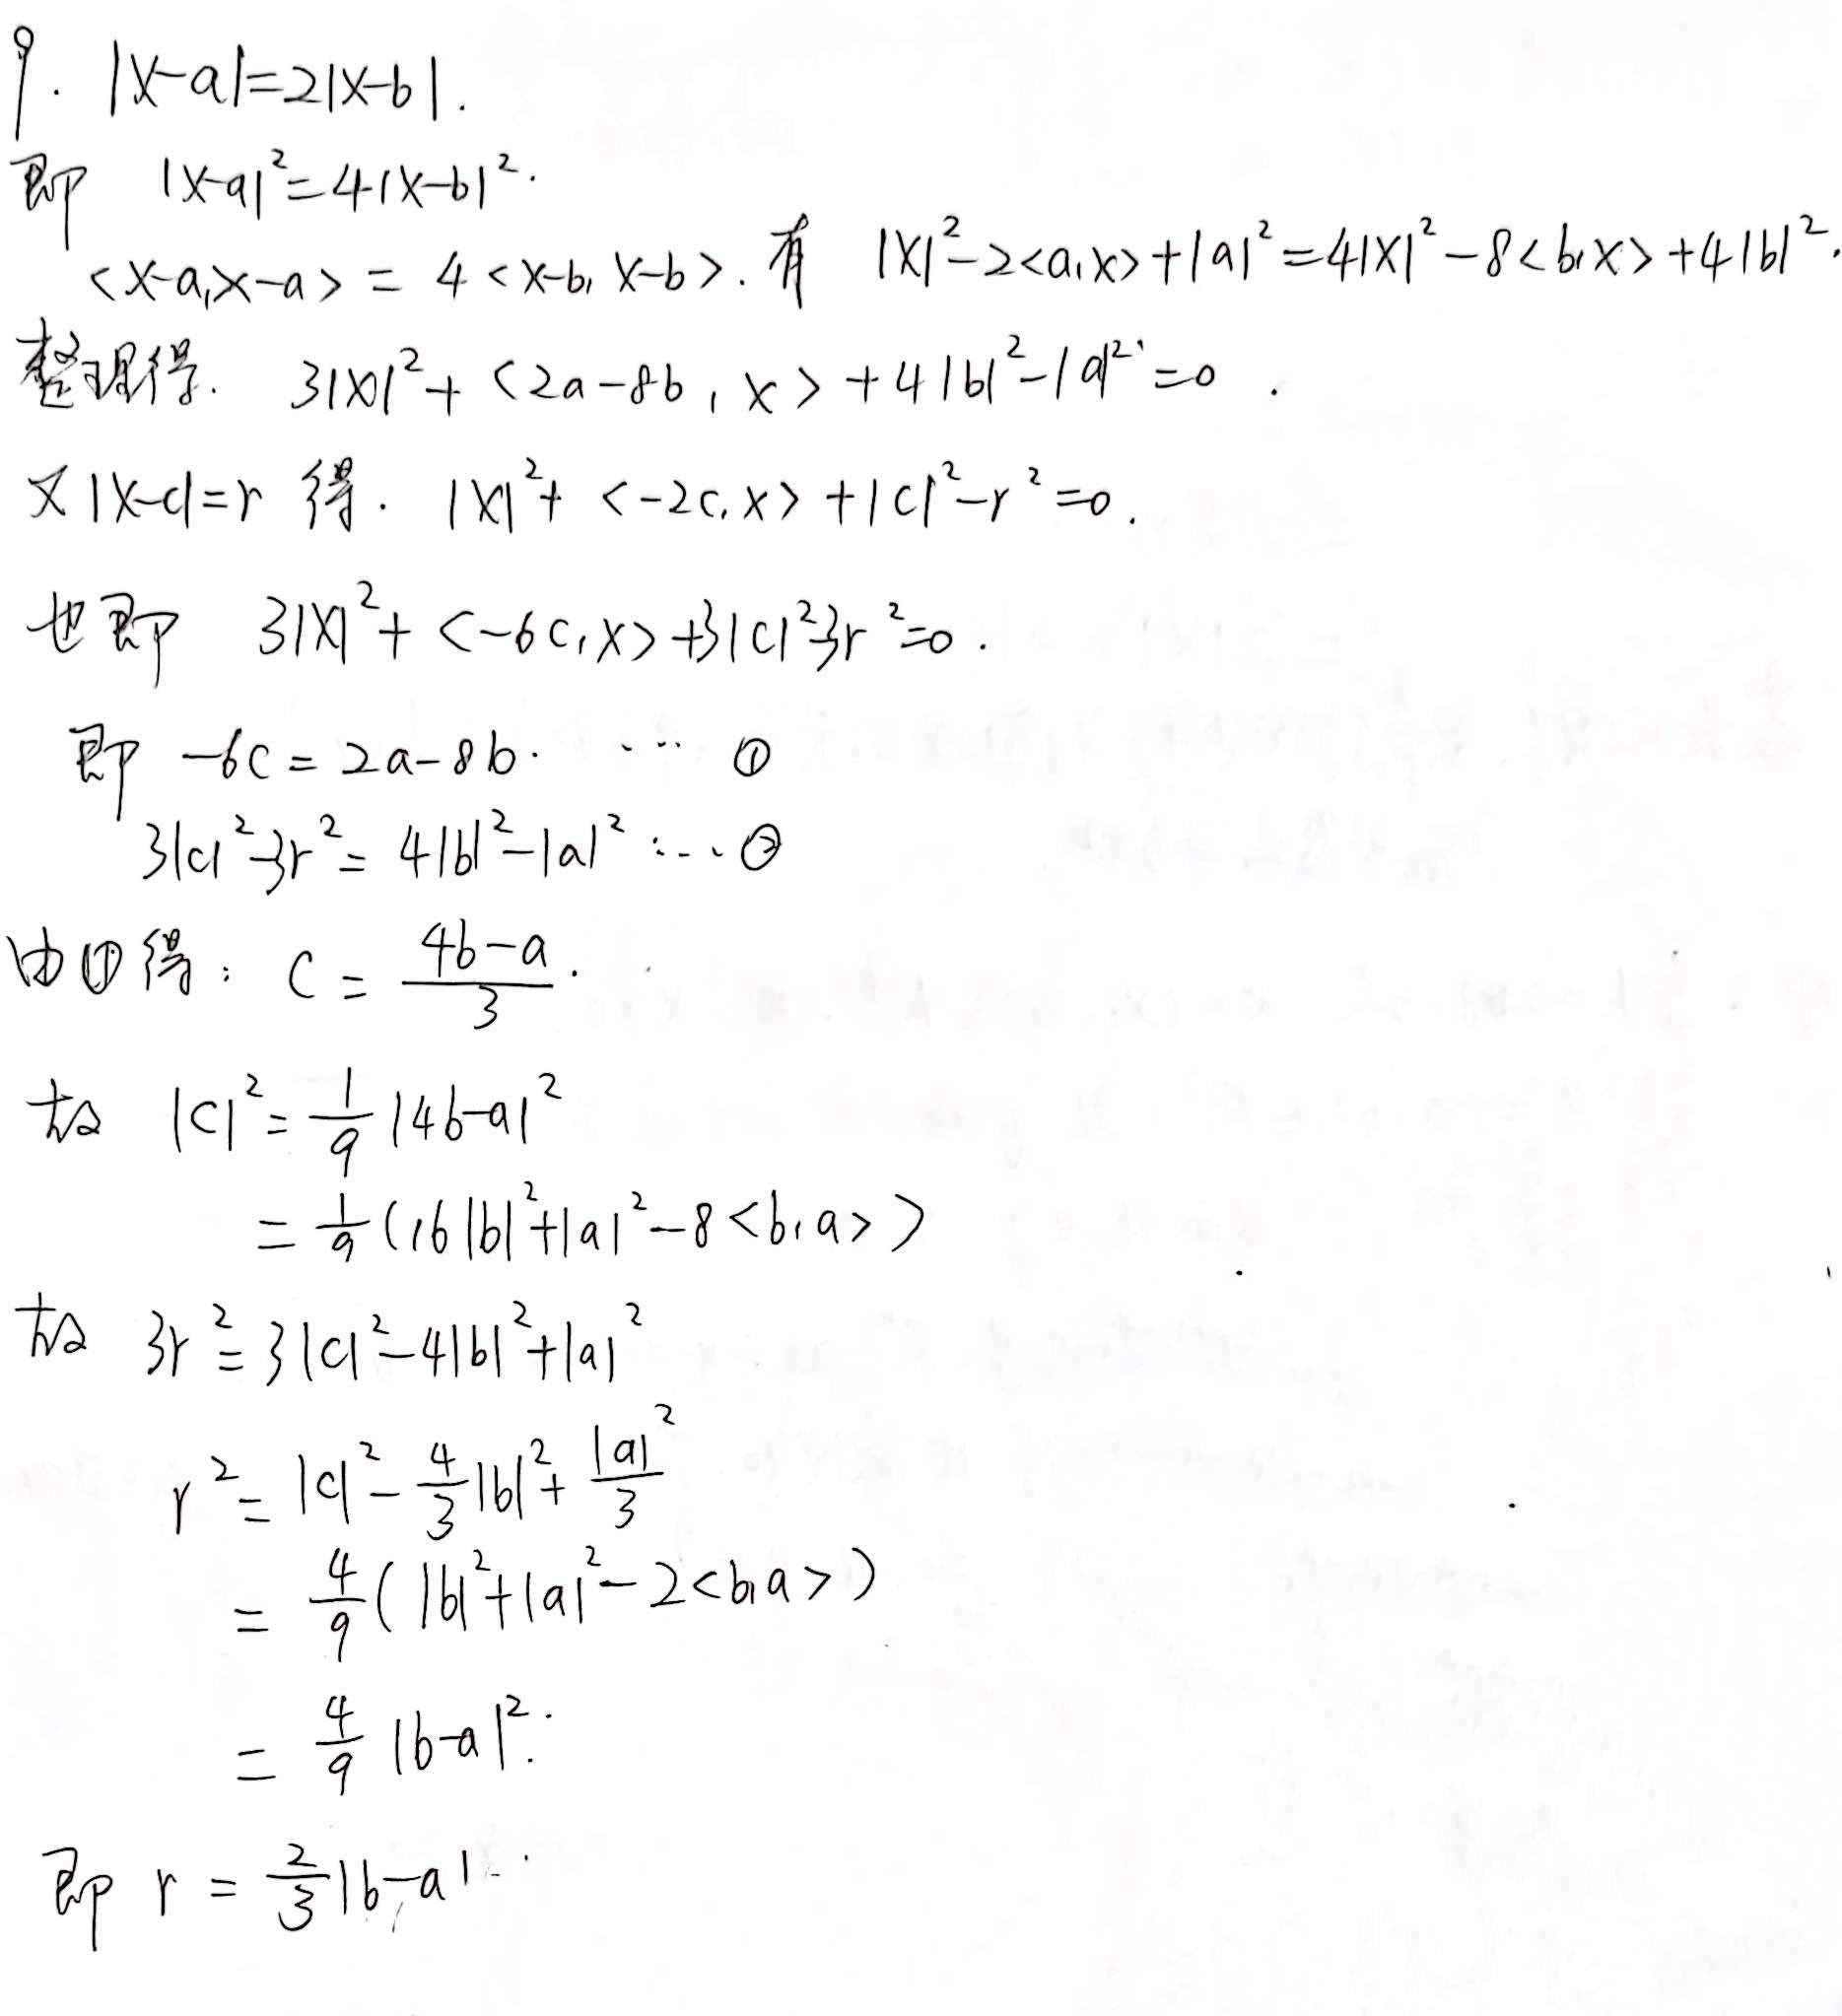 9. |x-a|=2|x-b|.
即 |x-a|²=4|x-b|².
<x-a,x-a> = 4<x-b, x-b>. 有 |x|²-2<a,x>+|a|²=4|x|²-8<b,x>+4|b|².
整理得. 3|x|²+<2a-8b, x>+4|b|²-|a|²=0.
又|x-c|=r 得. |x|²+<-2c,x>+|c|²-r²=0.
也即 3|x|²+<-6c,x>+3|c|²-3r²=0.
即 -6c=2a-8b. ... ①
3|c|²-3r²=4|b|²-|a|² ... ②
由①得: c=\frac{4b-a}{3}.
故 |c|²=\frac{1}{9}|4b-a|²
=\frac{1}{9}(16|b|²+|a|²-8<b,a>)
故 3r²=3|c|²-4|b|²+|a|²
r²=|c|²-\frac{4}{3}|b|²+\frac{|a|²}{3}
=\frac{4}{9}(|b|²+|a|²-2<b,a>)
=\frac{4}{9}|b-a|².
即 r=\frac{2}{3}|b-a|